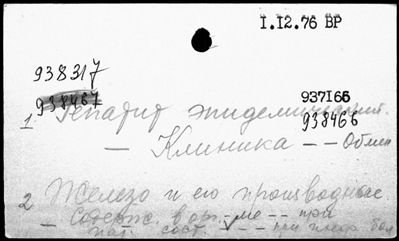 1.12.76 ВР
938317
938467
937166
938466
1 Гепатит эпидемический.
— Клиника — — Обмен
2 Железо и его производные
— Содерж. в орг-ме — — при
пат. сост. — — при